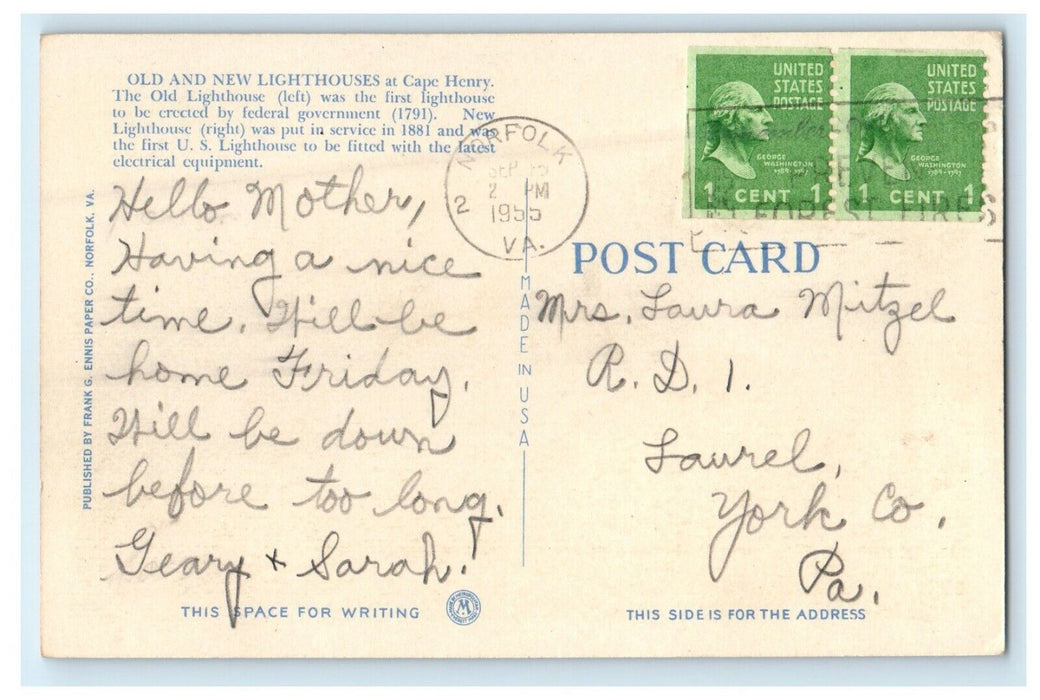 OLD AND NEW LIGHTHOUSES at Cape Henry.
The Old Lighthouse (left) was the first lighthouse
to be erected by federal government (1791). New
Lighthouse (right) was put in service in 1881 and was
the first U. S. Lighthouse to be fitted with the latest
electrical equipment.
Hello Mother,
Having a nice
time. Will be
home Friday.
Will be down
before too long.
Geary + Sarah.
THIS SPACE FOR WRITING
PUBLISHED BY FRANK G. ENNIS PAPER CO., NORFOLK, VA.
NORFOLK
SEP
2 PM
1955
VA.
2
MADE IN USA
UNITED
STATES
POSTAGE
GEORGE
WASHINGTON
1789-1797
1 CENT 1
UNITED
STATES
POSTAGE
GEORGE
WASHINGTON
1789-1797
1 CENT 1
FOREST FIRES
POST CARD
Mrs. Laura Mitzel
R. D. 1.
Laurel,
York Co.
Pa.
THIS SIDE IS FOR THE ADDRESS